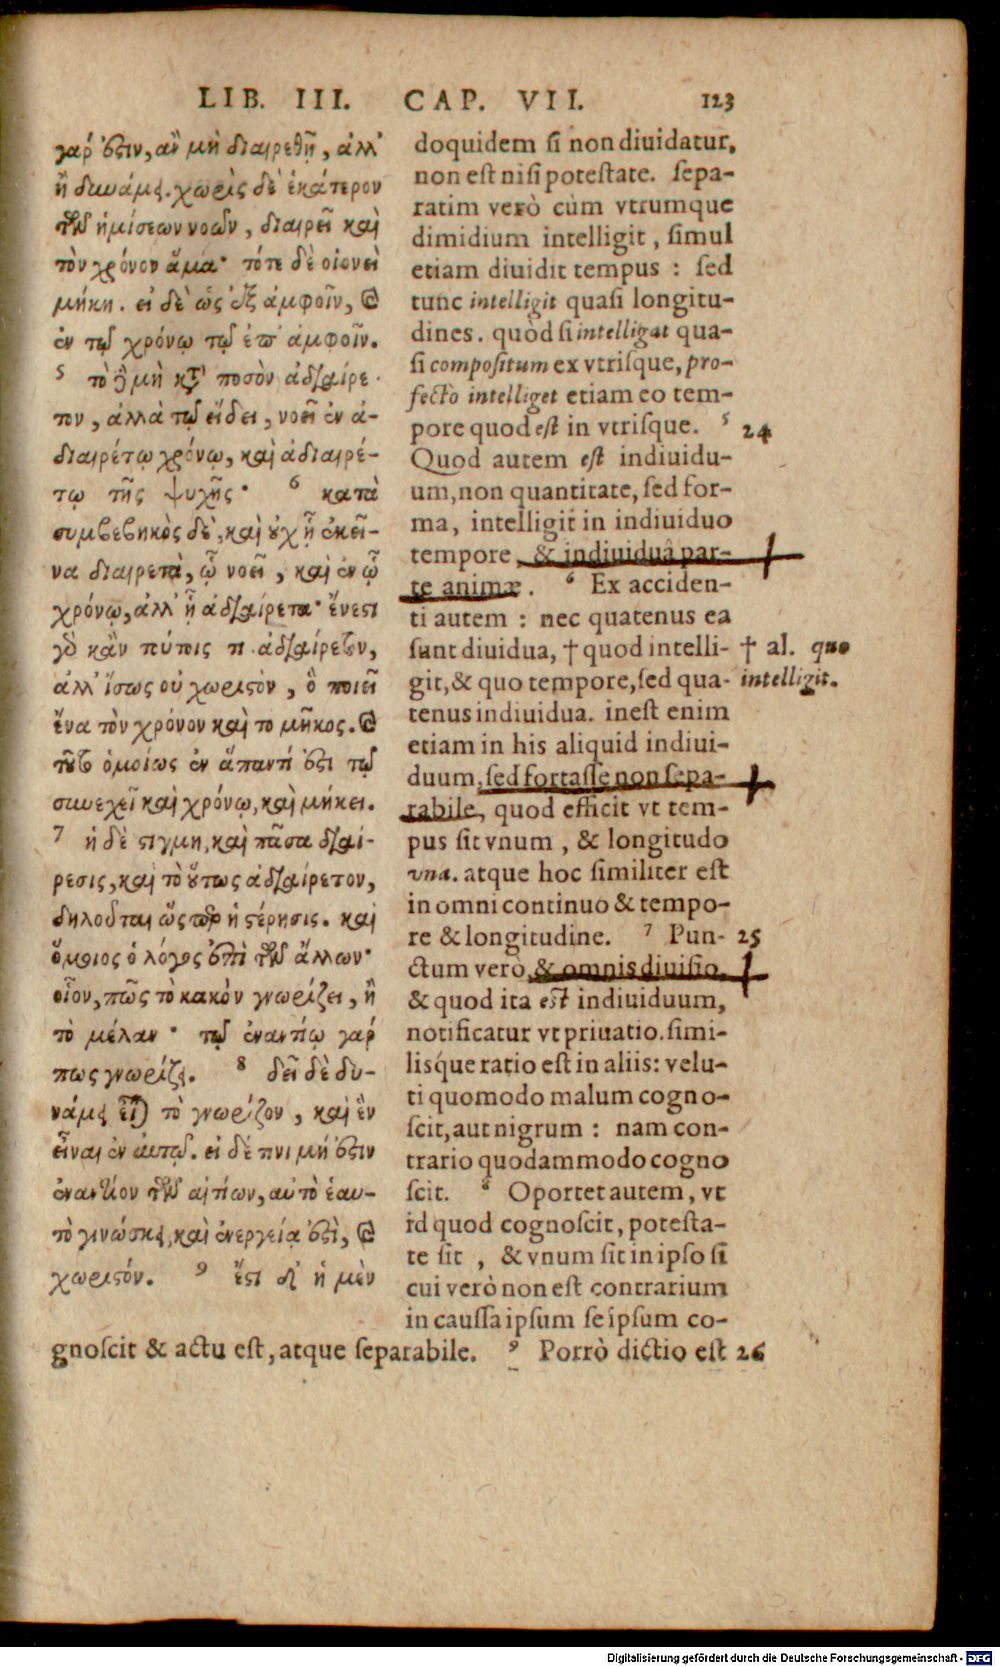 LIB. III. CAP. VII. 123
γάρ ἐστιν, ἂν μὴ διαιρεθῇ, ἀλλ'
ἢ δυνάμει. χωρὶς δὲ ἑκάτερον
τῶν ἡμίσεων νοῶν, διαιρεῖ καὶ
τὸν χρόνον ἅμα· τότε δὲ οἱονεὶ
μήκη. εἰ δὲ ὡς ἐξ ἀμφοῖν, καὶ
ἐν τῷ χρόνῳ τῷ ἐπ' ἀμφοῖν.
5 τὸ δὲ μὴ κατὰ ποσὸν ἀδιαίρε-
τον, ἀλλὰ τῷ εἴδει, νοεῖ ἐν ἀ-
διαιρέτῳ χρόνῳ, καὶ ἀδιαιρέ-
τῳ τῆς ψυχῆς· 6 κατὰ
συμβεβηκὸς δὲ, καὶ οὐχ ᾗ ἐκεῖ-
να διαιρετὰ, ᾧ νοεῖ, καὶ ἐν ᾧ
χρόνῳ, ἀλλ' ᾗ ἀδιαίρετα· ἔνεστι
γὸ κἂν τούτοις τι ἀδιαίρετον,
ἀλλ' ἴσως οὐ χωριστὸν, ὃ ποιεῖ
ἕνα τὸν χρόνον καὶ το μῆκος. καὶ
τοῦτο ὁμοίως ἐν ἅπαντί ἐστι τῷ
συνεχεῖ καὶ χρόνῳ, καὶ μήκει.
7 ἡ δὲ στιγμὴ, καὶ πᾶσα διαί-
ρεσις, καὶ τὸ οὕτως ἀδιαίρετον,
δηλοῦται ὥσπερ ἡ στέρησις. καὶ
ὅμοιος ὁ λόγος ἐπὶ τῶν ἄλλων·
οἷον, πῶς τὸ κακὸν γνωρίζει, ἢ
τὸ μέλαν· τῷ ἐναντίῳ γάρ
πως γνωρίζει. 8 δεῖ δὲ δυ-
νάμει εἶναι τὸ γνωρίζον, καὶ ἓν
εἶναι ἐν αὐτῷ. εἰ δέ τινι μή ἐστιν
ἐναντίον τῶν αἰτίων, αὐτὸ ἑαυ-
τὸ γινώσκει, καὶ ἐνεργείᾳ ἐστὶ, καὶ
χωριστόν. 9 ἔστι δ' ἡ μὲν
doquidem si non diuidatur,
non est nisi potestate. sepa-
ratim verò cùm vtrumque
dimidium intelligit, simul
etiam diuidit tempus : sed
tunc intelligit quasi longitu-
dines. quòd si intelligat qua-
si compositum ex vtrisque, pro-
fectò intelliget etiam eo tem-
pore quod est in vtrisque. 5 24
Quod autem est indiuidu-
um, non quantitate, sed for-
ma, intelligit in indiuiduo
tempore, & indiuiduâ par-
te animæ. 6 Ex acciden-
ti autem : nec quatenus ea
sunt diuidua, † quod intelli- † al. quo
git, & quo tempore, sed qua- intelligit.
tenus indiuidua. inest enim
etiam in his aliquid indiui-
duum, sed fortasse non sepa-
rabile, quod efficit vt tem-
pus sit vnum, & longitudo
vna. atque hoc similiter est
in omni continuo & tempo-
re & longitudine. 7 Pun- 25
ctum verò, & omnis diuisio,
& quod ita est indiuiduum,
notificatur vt priuatio. simi-
lisque ratio est in aliis: velu-
ti quomodo malum cogno-
scit, aut nigrum : nam con-
trario quodammodo cogno
scit. 8 Oportet autem, vt
id quod cognoscit, potesta-
te sit, & vnum sit in ipso si
cui verò non est contrarium
in caussa ipsum seipsum co-
gnoscit & actu est, atque separabile. 9 Porrò dictio est 26
Digitalisierung gefördert durch die Deutsche Forschungsgemeinschaft - DFG